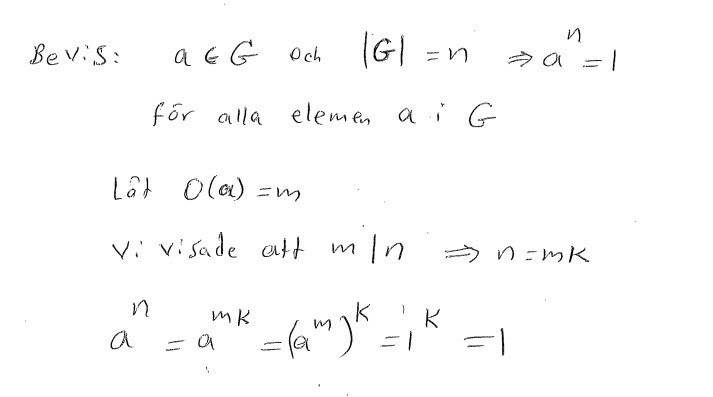 Bevis: a ∈ G och |G| = n ⇒ aⁿ = 1
för alla elemen a i G
Låt O(a) = m
Vi visade att m|n ⇒ n = mk
aⁿ = aᵐᵏ = (aᵐ)ᵏ = 1ᵏ = 1